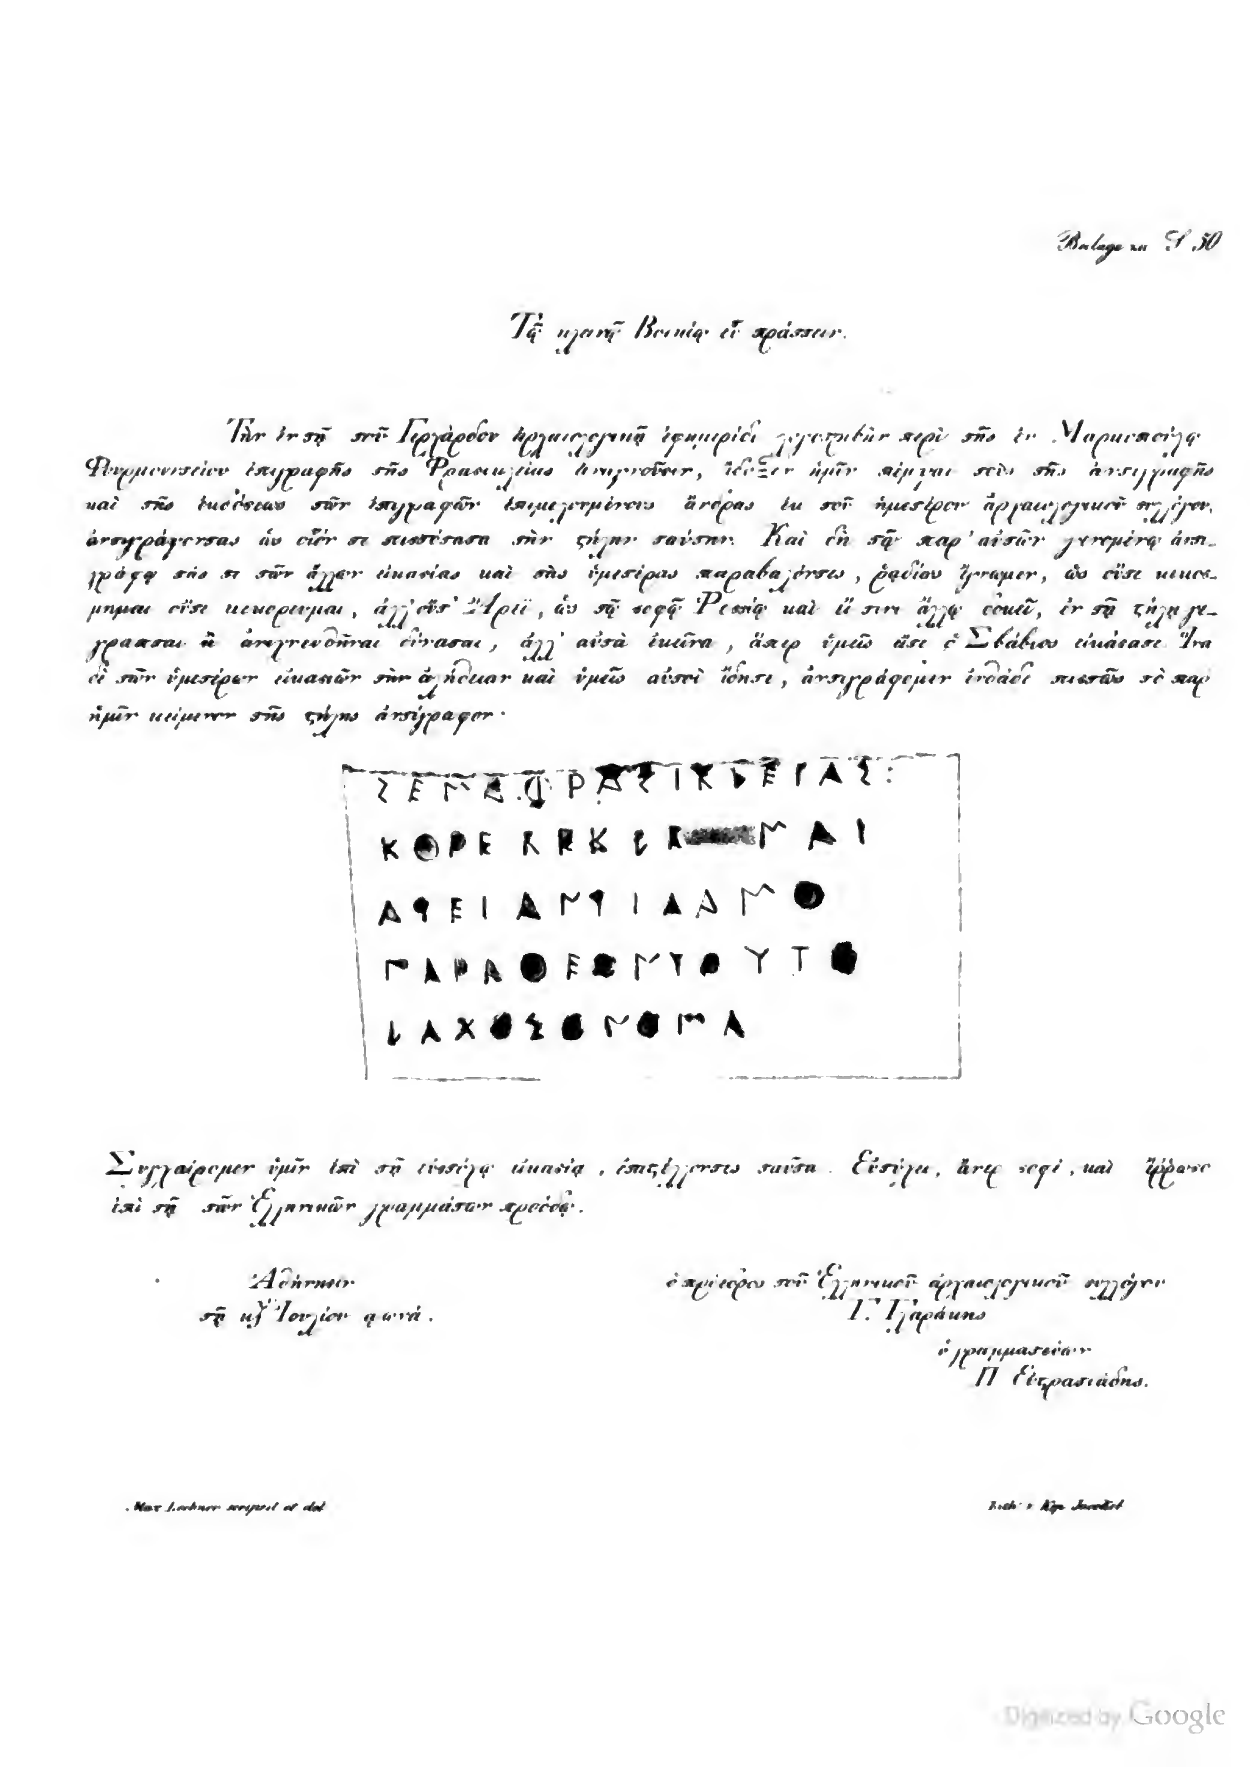 Beilage zu S 50
Τῷ κλεινῷ Βοικίῳ εὖ πράττειν.
Τὴν ἐν τῇ τοῦ Γερχάρδου Ἀρχαιολογικῇ ἐφημερίδι περὶ τῆς ἐν Μαρκοπούλῳ
ἐπιγραφῆς τῆς Φρασικλείας ἀναγνοῦσιν, ἔδοξεν ἡμῖν πέμψαι τοὺς τῆς ἀντιγραφῆς
καὶ τῆς ἐκδόσεως τῶν ἐπιγραφῶν ἐπιμελουμένους ἄνδρας ἐκ τοῦ ἡμετέρου ἀρχαιολογικοῦ συλλόγου,
ἀντιγράψοντας ὡς οἷόν τε πιστότατα τὴν στήλην ταύτην. Καὶ δὴ τῷ παρ' αὐτῶν γενομένῳ ἀντι-
γράφῳ τάς τε τῶν ἄλλων εἰκασίας καὶ τὰς ὑμετέρας παραβαλόντες, ῥᾳδίως ἔγνωμεν, ὡς οὔτε κεκοσ-
μημαι οὔτε κεκόρευμαι, ἀλλ' οὔτ' Ἄρει, ὡς τῷ σοφῷ Ῥοσσίῳ καὶ εἴ τινι ἄλλῳ δοκεῖ, ἐν τῇ στήλῃ γέ-
γραπται ἢ ἀναγνωσθῆναι δύναται, ἀλλ' αὐτὰ ἐκεῖνα, ἅπερ ὑμεῖς ὅ Σβάβιος εἰκάσατε. Ἵνα
δὲ τῶν ὑμετέρων εἰκασιῶν τὴν ἀλήθειαν καὶ ὑμεῖς αὐτοὶ ἴδητε, ἀντιγράφομεν ἐνθάδε πιστῶς τὸ παρ'
ἡμῖν κείμενον τῆς στήλης ἀντίγραφον·
ΣΕΜΑΦΡΑΣΙΚΛΕΙΑΣ:
ΚΟΡΕΚΕΚΛΕ ΜΑΙ
ΑΕΙΑΝΤΙΓΑΜΟ
ΠΑΡΑΘΕΟΝΤΟΥΤΟ
ΛΑΧΟΣΟΝΟΜΑ
Συγχαίρομεν ὑμῖν ἐπὶ τῇ εὐστόχῳ εἰκασίᾳ, ἐπιστέλλοντες ταῦτα. Εὐτύχει, ἄνερ σοφέ, καὶ ἔρρωσο
ἐπὶ τῇ τῶν Ἑλληνικῶν γραμμάτων προόδῳ.
Ἀθήνησιν
τῇ κζ' Ἰουλίου αωνά.
ὁ πρόεδρος τοῦ Ἑλληνικοῦ ἀρχαιολογικοῦ συλλόγου
Γ. Γλαράκης
ὁ γραμματεύων
Π Εὐστρατιάδης.
Max Lochner scripsit et del
Digitized by Google